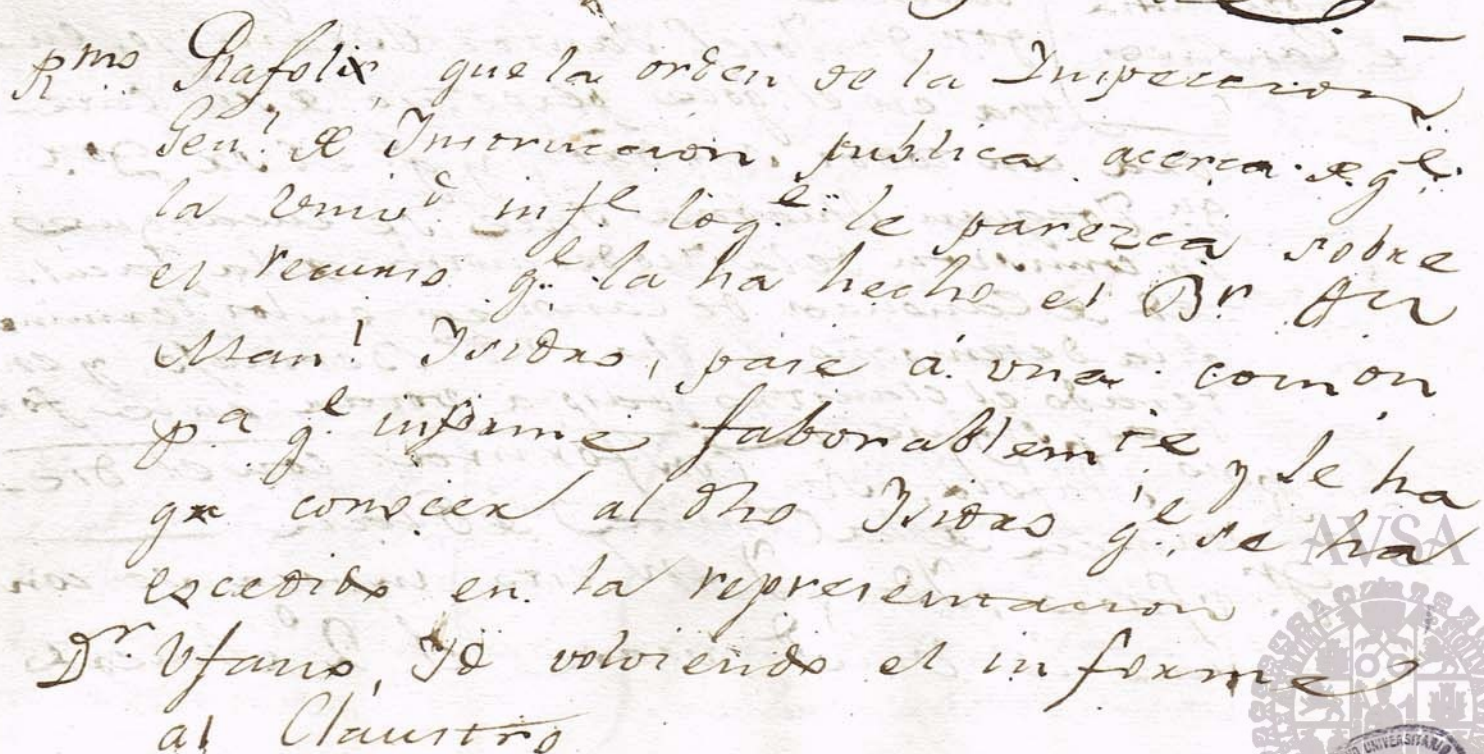 Rmo Rafolis, que la orden de la Inspeccion
Genl. de Instruccion publica acerca de qe.
la Univd. infe. loqe. le parezca sobre
el recurso qe. la ha hecho el Br
Manl. Isidro, pase á una comon
pa. qe. informe faborablemte y se ha
ga conocer al dho Isidro qe. se ha
escedido en la representacion
Dr. Ufano, Id volviendo el informe
al Claustro
AVSA